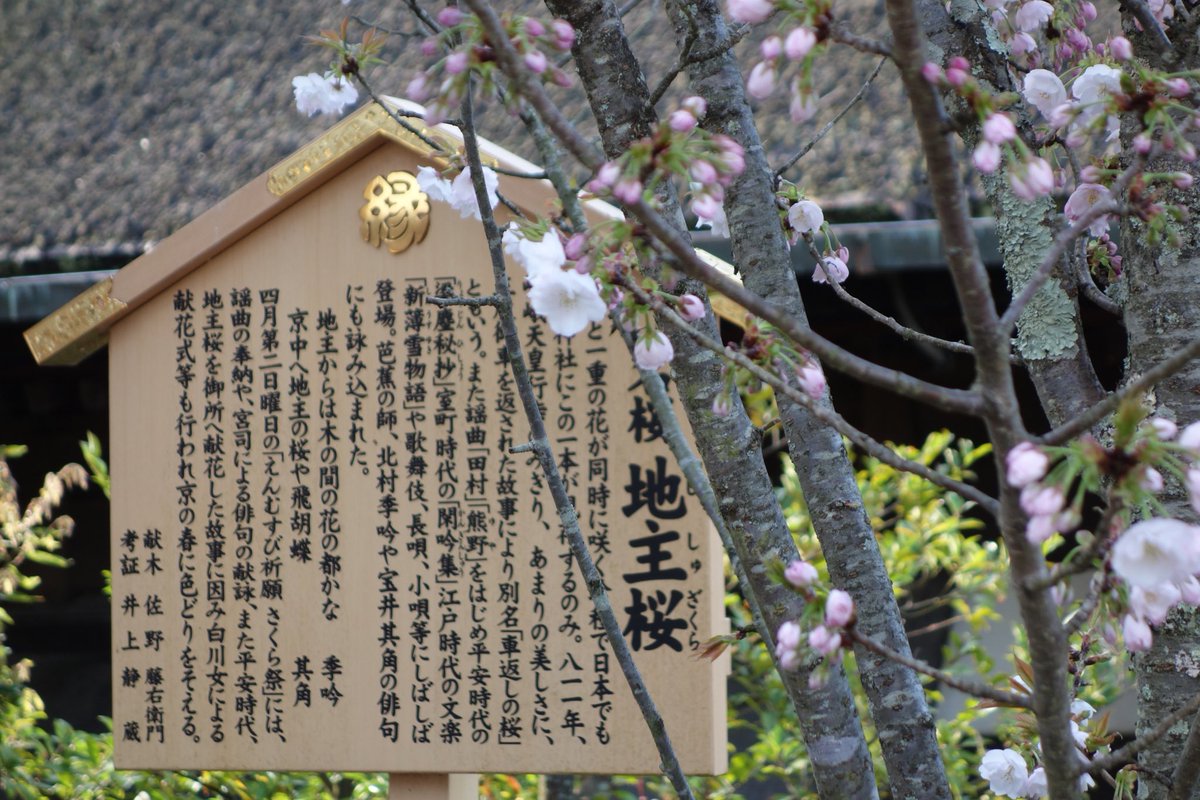 縁
桜 地主桜
しゅ ざくら
と一重の花が同時に咲く
で日本でも
社にこの一本が するのみ。八一一年、
天皇行 のぎり、あまりの美しさに、
車を返された故事により別名「車返しの桜」
ともいう。また謡曲「田村」「熊野」をはじめ平安時代の
「梁塵秘抄」室町時代の「閑吟集」江戸時代の文楽
「新薄雪物語」や歌舞伎、長唄、小唄等にしばしば
登場。芭蕉の師、北村季吟や宝井其角の俳句
にも詠み込まれた。
地主からは木の間の花の都かな 季吟
京中へ地主の桜や飛胡蝶 其角
四月第二日曜日の「えんむすび祈願 さくら祭」には、
謡曲の奉納や、宮司による俳句の献詠、また平安時代、
地主桜を御所へ献花した故事に因み白川女による
献花式等も行われ京の春に色どりをそえる。
献木 佐野 藤右衛門
考証 井上 静蔵